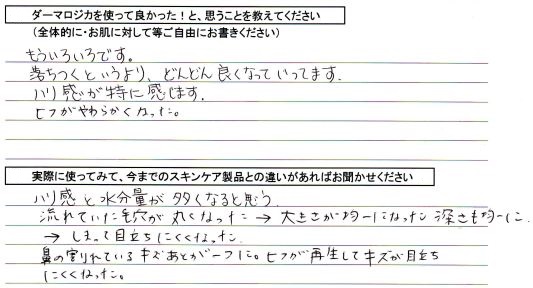 ダーマロジカを使って良かった！と、思うことを教えてください
（全体的に・お肌に対して等ご自由にお書きください）
もういろいろです。
落ちつくというより、どんどん良くなっていってます。
ハリ感が特に感じます。
ヒフがやわらかくなった。
実際に使ってみて、今までのスキンケア製品との違いがあればお聞かせください
ハリ感と水分量が多くなると思う。
流れていた毛穴が丸くなった → 大きさが均一になった 深さも均一に
→ しまって目立ちにくくなった
鼻の割れているキズあとが一つに。ヒフが再生してキズが目立ち
にくくなった。